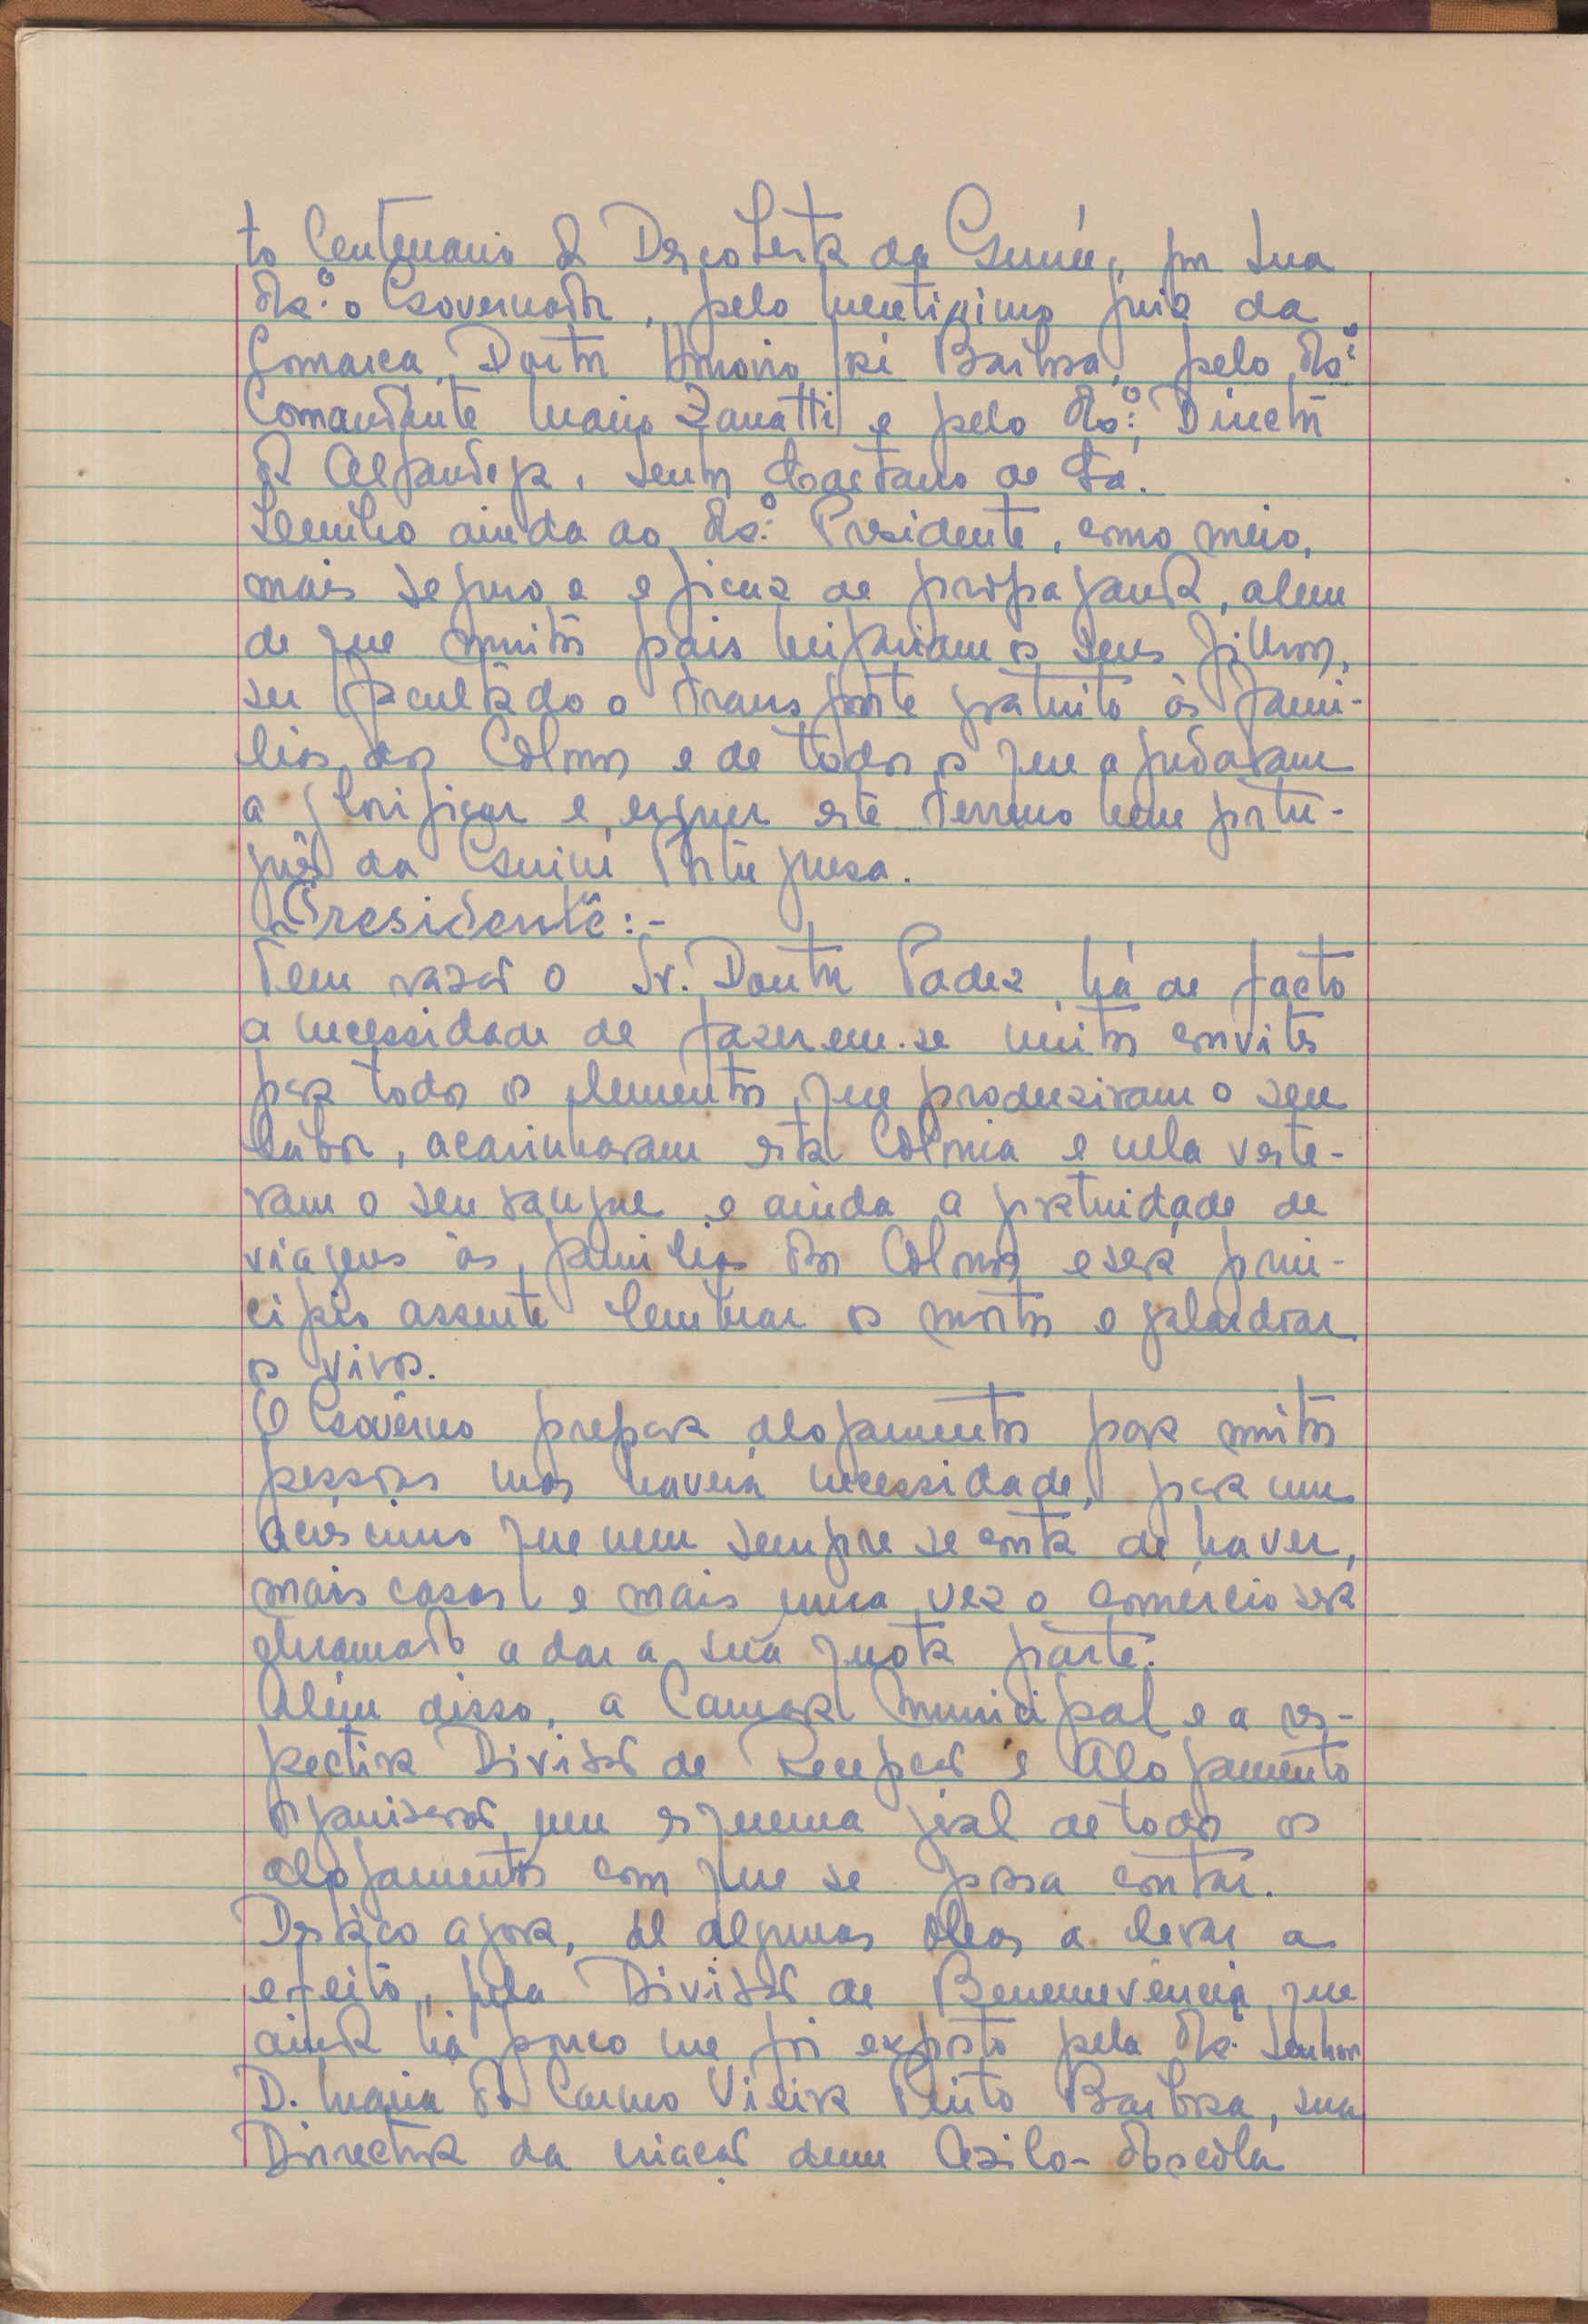 to Centenario da Descoberta da Guiné, por Sua
Ex.º o Governador, pelo Meretissimo juiz da
Comarca, Doutor Honorio José Barbosa, pelo Ex.º
Comandante Mario Zanatti e pelo Ex.º Director
da Alfandega, Senhor Caetano de Sá.
Lembro ainda ao Ex.º Presidente, como meio,
mais seguro e eficaz de propaganda, alem
de que muitos pais beijariam os seus filhos,
ser facultado o transporte gratuito ás fami-
lias dos Colonos e de todos os que ajudaram
a glorificar e erguer este terreno bem portu-
guês da Guiné Portuguesa.
Presidente:-
Tem razão o Sr. Doutor Padez, há de facto
a necessidade de fazerem-se muitos convites
para todos os elementos que produziram o seu
labor, acarinharam esta Colonia e nela verte-
ram o seu sangue e ainda a gratuidade de
viagens ás familias dos Colonos e será prin-
cipio assente lembrar os mortos e galardoar
os vivos.
O Govêrno prepara alojamentos para muitas
pessoas mas haverá necessidade, para um
acrescimo que nem sempre se conta de haver,
mais casas e mais uma vez o comércio será
chamado a dar a sua quota parte.
Além disso, a Camara Municipal e a res-
pectiva Divisão de Recepção e Alojamento
organisarão um esquema geral de todos os
alojamentos com que se possa contar.
Destaco agora, de algumas obras a levar a
efeito, pela Divisão de Benemerencia que
ainda há pouco me foi exposto pela Ex.ª Senhora
D. Maria do Carmo Vieira Pinto Barbosa, sua
Directora da criação dum Asilo-Escola